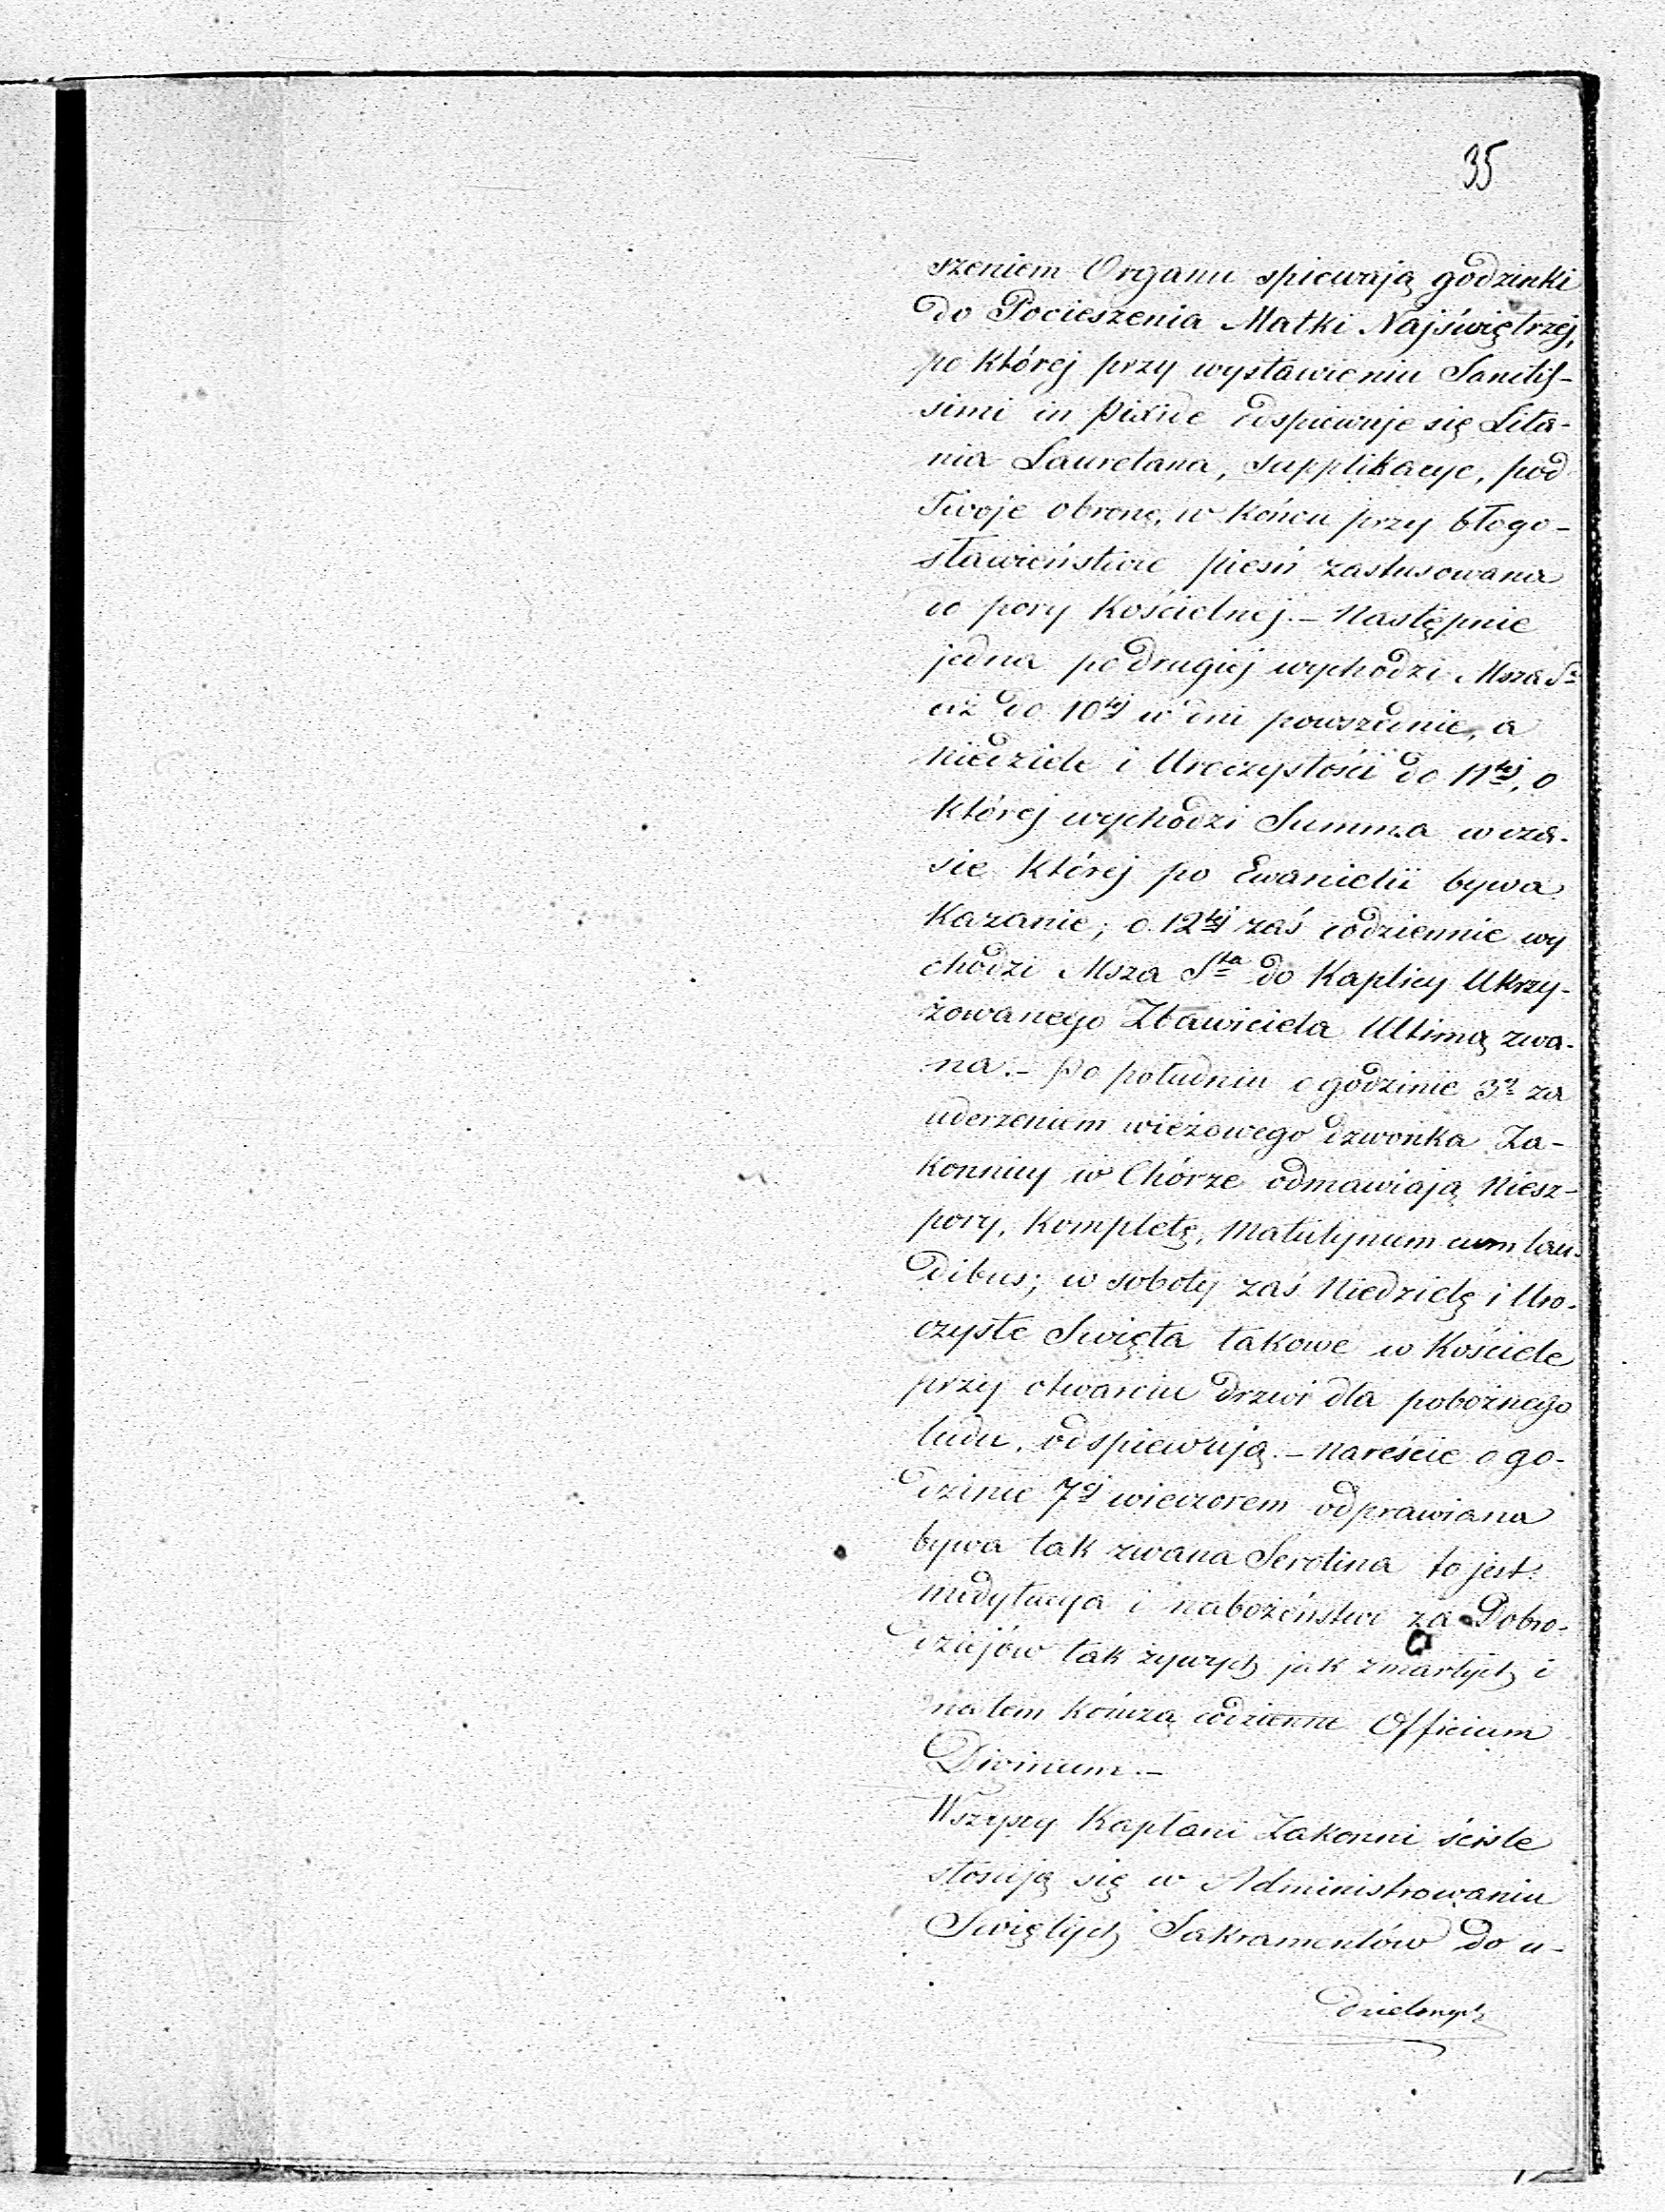 35
szeniem Organu spiewają godzinki
do Pocieszenia Matki Najświętrzej,
po której przy wystawieniu Sanctis-
simi in pixide odspiewuje się Lita-
nia Lauretana, supplikacye, pod
Twoje obronę, w końcu przy błogo-
sławieństwie pieśń zastosowana
do pory Kościelnej. – Następnie
jedna po drugiej wychodzi Msza Sta
aż do 10tej w dni powszednie, a
Niedziele i Uroczystości do 11tej, o
której wychodzi Summa w cza-
sie której po Ewanielii bywa
Kazanie; o 12tej zaś codziennie wy
chodzi Msza Sta do Kaplicy Ukrzy-
żowanego Zbawiciela Ultimą zwa-
na. – Po południu o godzinie 3ej za
uderzeniem wieżowego dzwonka Za-
konnicy w Chórze odmawiają Niesz-
pory, Kompletę, Matutynum cum lau-
dibus; w soboty zaś Niedzielę i Uro-
czyste Swięta takowe w Kościele
przy otwarciu drzwi dla pobożnego
ludu, odspiewują. – Nareście o go-
dzinie 7ej wieczorem odprawiana
bywa tak zwana Serotina to jest
medytacya i nabożeństwo za Dobro-
dziejów tak żywych jak zmarłych i
na tem kończą codzienne Officium
Divinum. –
Wszyscy Kapłani Zakonni ściśle
stosują się w Administrowaniu
Swiętych Sakramentów do u-
dzielonych